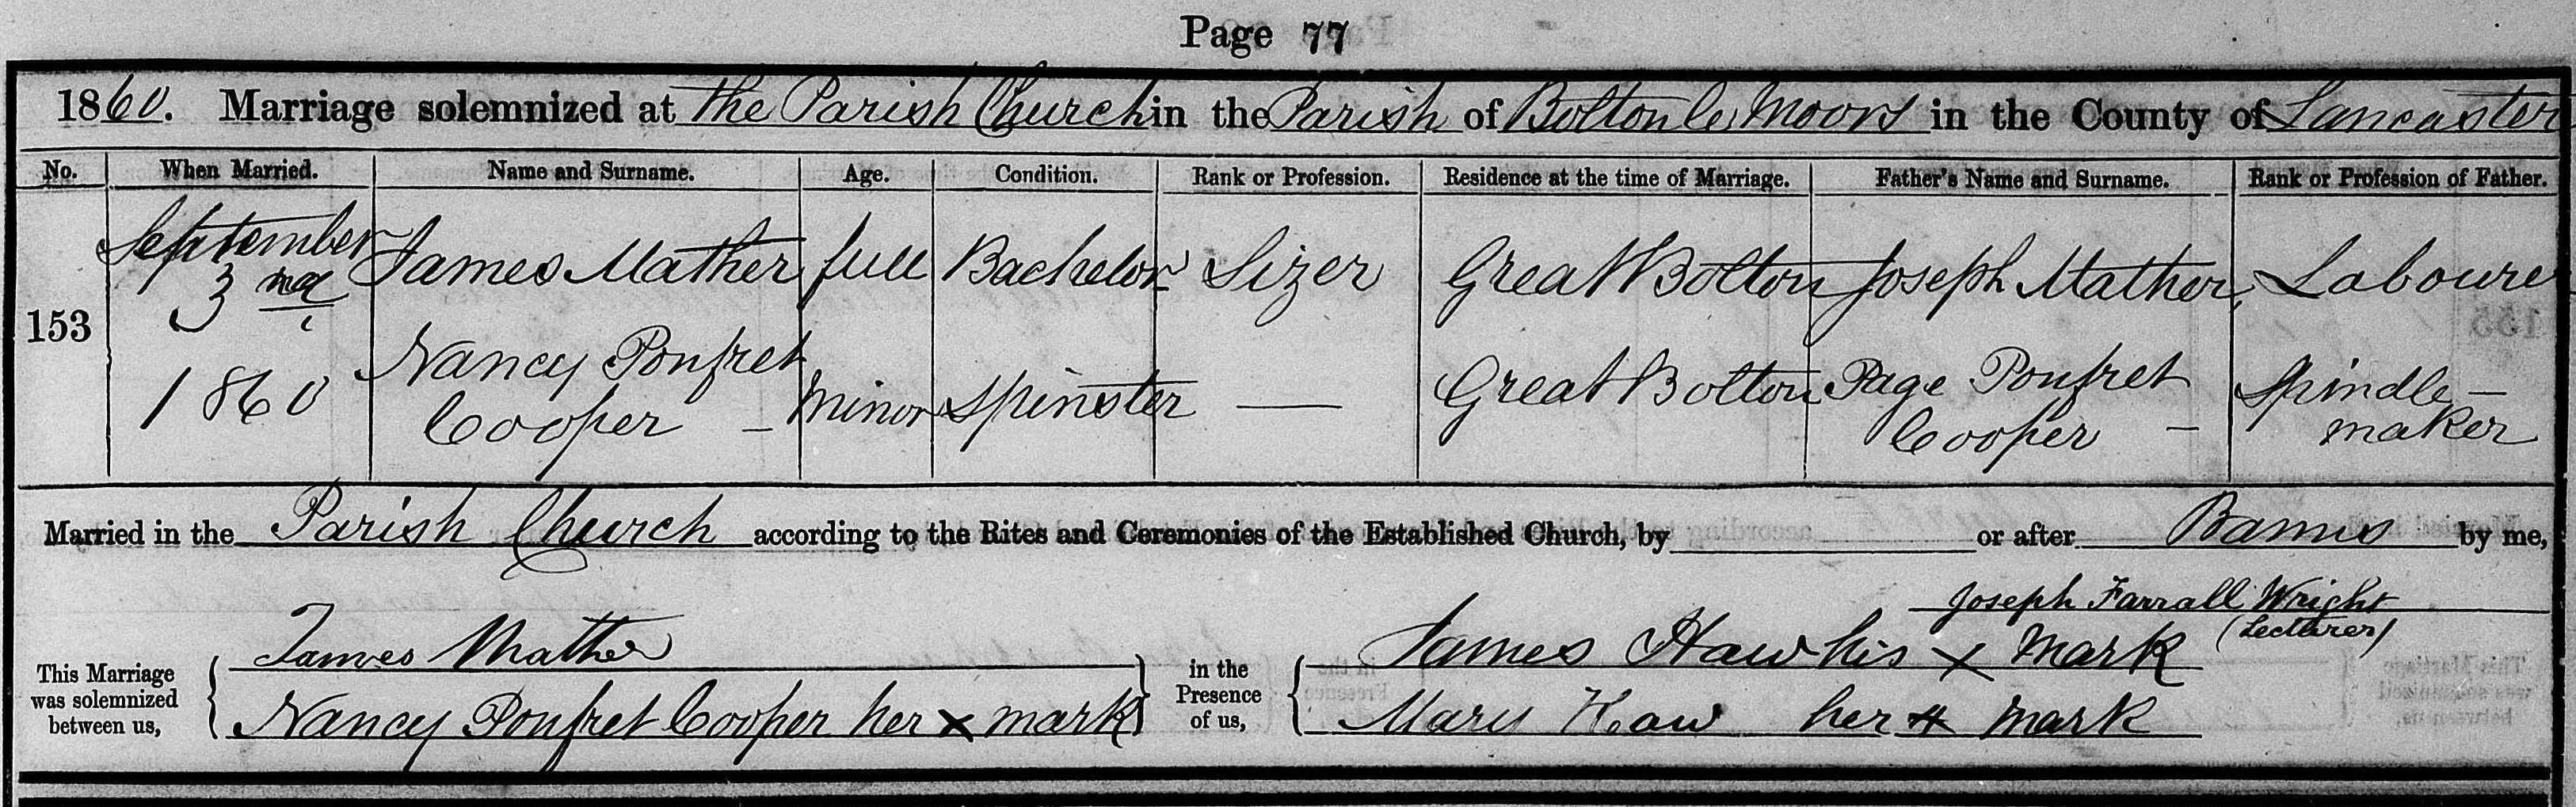 Page 77
1860. Marriage solemnized at the Parish Church in the Parish of Bolton le Moors in the County of Lancaster
No. When Married. Name and Surname. Age. Condition. Rank or Profession. Residence at the time of Marriage. Father's Name and Surname. Rank or Profession of Father.
153
September 3rd 1860
James Mather full Bachelor Sizer Great Bolton Joseph Mather Laboure
Nancy Ponfret Cooper – minor spinster — Great Bolton Page Ponfret Cooper – Spindle-maker
Married in the Parish Church according to the Rites and Ceremonies of the Established Church, by or after Banns by me,
Joseph Farrall Wright
(Lecturer)
This Marriage was solemnized between us,
James Mather
Nancy Ponfret Cooper her x mark
in the Presence of us,
James Haw his x mark
Mary Haw her x mark